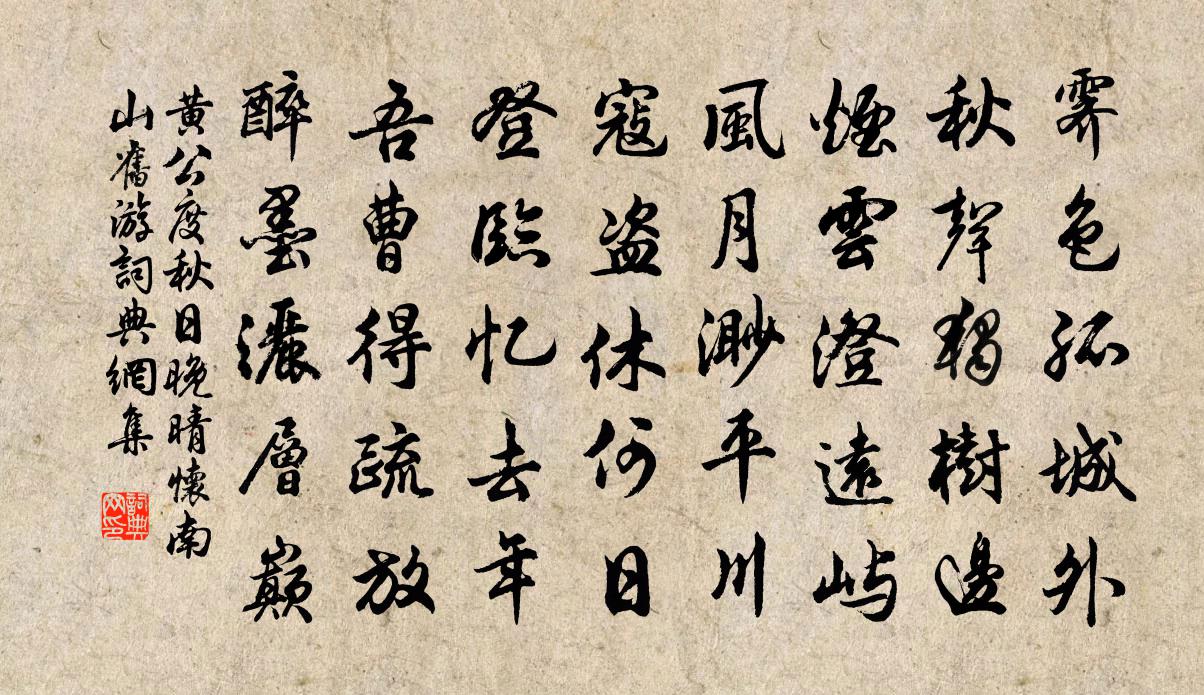 霽色孤城外
秋聲獨樹邊
煙雲澄遠嶼
風月渺平川
寇盜休何日
登臨忆去年
吾曹得疏放
醉墨灑層巔
黃公度秋日晚晴懷南
山舊游詞典網集
詞典网印